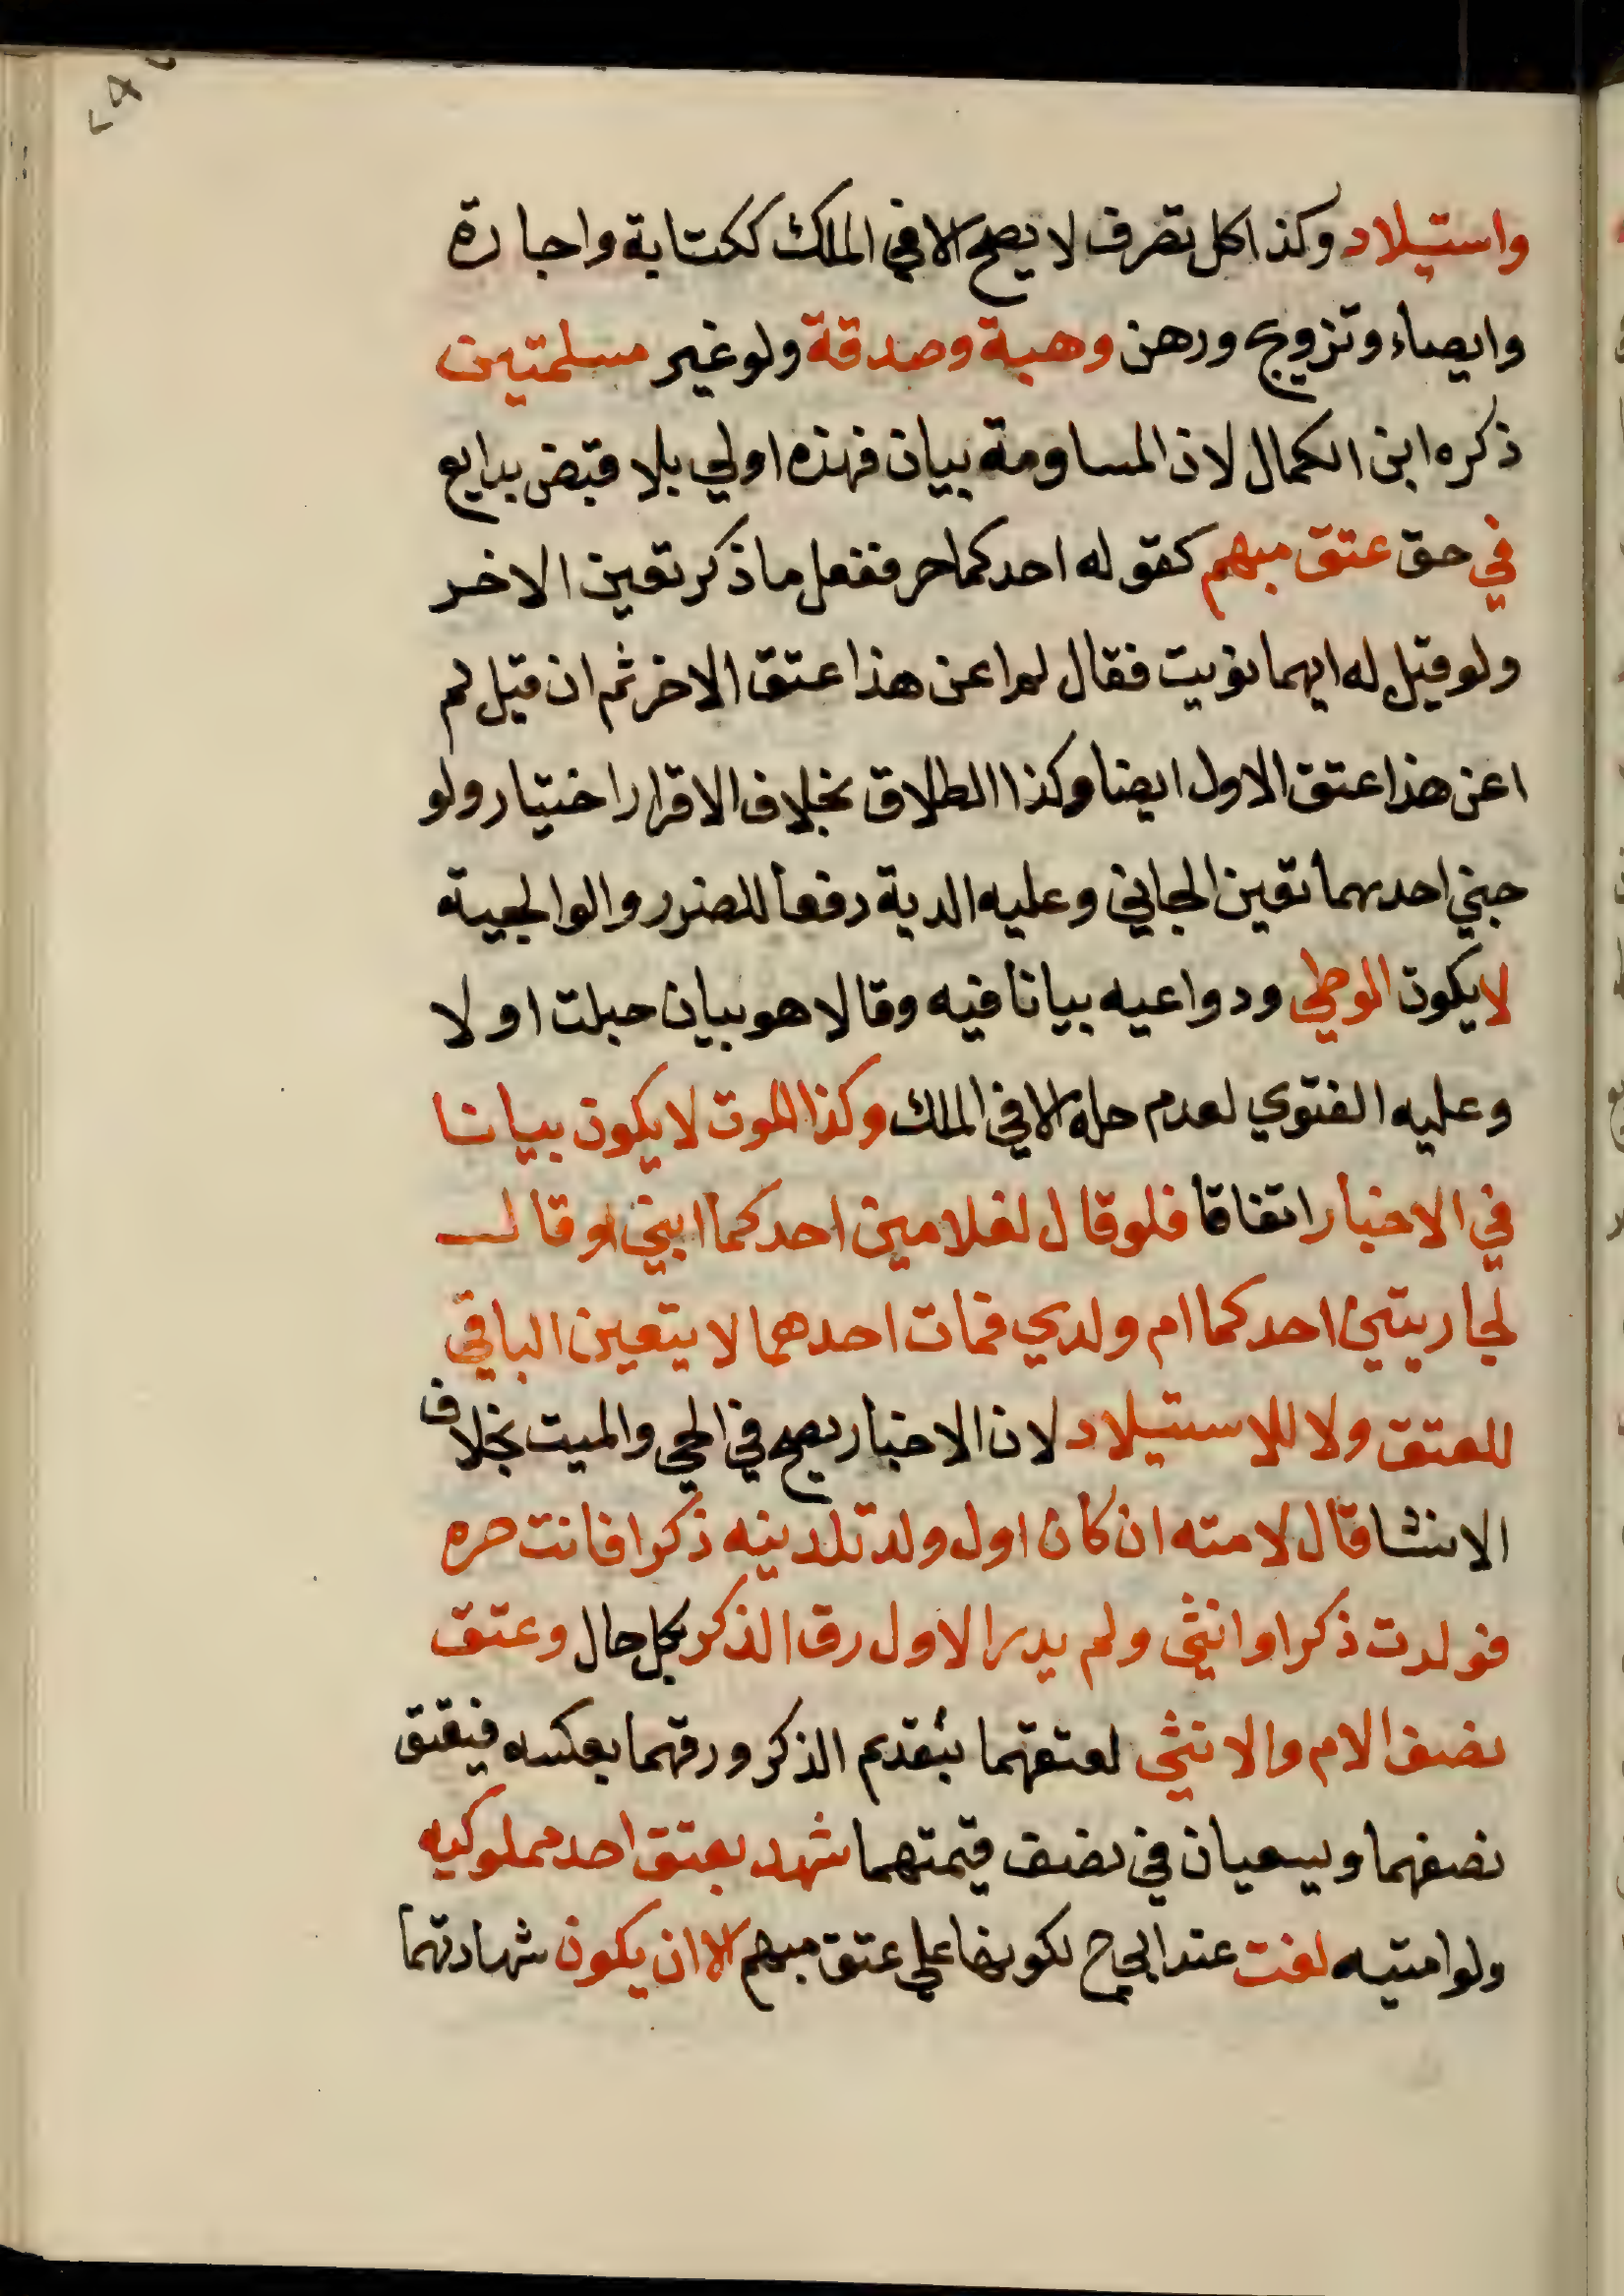 واستيلاد وكذا كل تصرف لا يصح الا في الملك ككتابة واجارة
وايصاء وتزويج ورهن وهبة وصدقة ولو غير مسلمتين
ذكره ابن الكمال لان المساومة بيان فهذه اولي بلا قبض بدايع
في حق عتق مبهم كقوله احدكما حر ففعل ما ذكر تعين الاخر
ولو قيل له ايهما نويت فقال لم اعن هذا عتق الاخر ثم ان قيل لم
اعن هذا عتق الاول ايضا وكذا الطلاق بخلاف الاقرار اختيار ولو
جني احدهما تعين الجاني وعليه الدية دفعا للضرر والوالجية
لا يكون الوطي ودواعيه بيانا فيه وقالا هو بيان حبلت او لا
وعليه الفتوي لعدم حله الا في الملك وكذا الموت لا يكون بيانا
في الاخبار اتفاقا فلو قال لغلامين احدكما ابني او قال
لجاريتين احدكما ام ولدي فمات احدهما لا يتعين الباقي
للعتق ولا للاستيلاد لان الاخبار يصح في الحي والميت بخلاف
الانشا قال لامته ان كان اول ولد تلدينه ذكرا فانت حره
فولدت ذكرا وانثي ولم يدر الاول رق الذكر بكل حال وعتق
نصف الام والانثي لعتقهما بتقديم الذكر ورقهما بعكسه فيعتق
نصفهما ويسعيان في نصف قيمتهما شهد بعتق احد مملوكيه
ولو امتيه لغت عند ابي ح لكونها علي عتق مبهم الا ان يكون شهادتهما